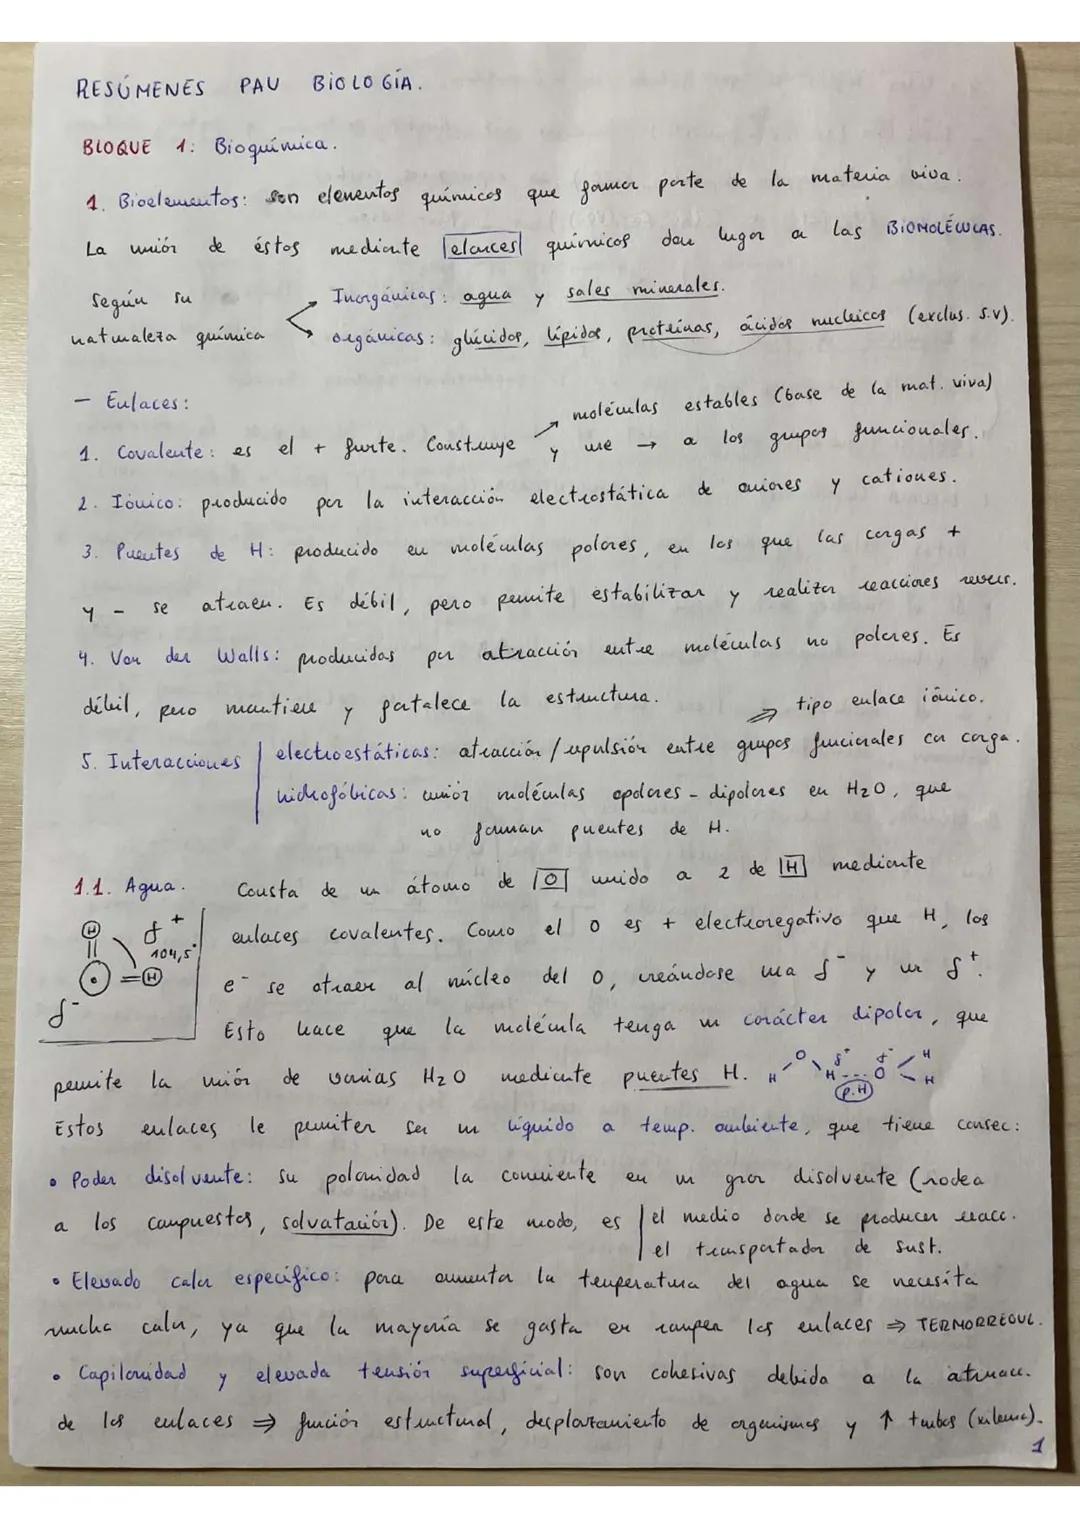 RESÚMENES PAU BIOLOGÍA.
BLOQUE 1: Bioquímica.
1. Bioelementos: son elementos químicos que forman parte de la materia viva.
La unión de éstos mediante enlaces químicos dan lugar a las BIOMOLÉCULAS.
Según su naturaleza química
Inorgánicas: agua y sales minerales.
orgánicas: glúcidos, lípidos, proteínas, ácidos nucleicos (exclus. s.v).
- Enlaces:
moléculas estables (base de la mat. viva)
1. Covalente: es el + fuerte. Construye y une → a los grupos funcionales.
2. Iónico: producido por la interacción electrostática de aniones y cationes.
3. Puentes de H: producido en moléculas polares, en los que las cargas +
y - se atraen. Es débil, pero permite estabilizar y realizar reacciones revers.
4. Van der Walls: producidas por atracción entre moléculas no polares. Es
débil, pero mantiene y fortalece la estructura.
⇒ tipo enlace iónico.
5. Interacciones | electroestáticas: atracción/repulsión entre grupos funcionales con carga.
hidrofóbicas: unión moléculas apolares - dipolares en H2O, que
no forman puentes de H.
1.1. Agua. Consta de un átomo de |O| unido a 2 de |H| mediante
H δ+ 104,5° H δ-
enlaces covalentes. Como el O es + electronegativo que H, los
e- se atraen al núcleo del O, creándose una δ- y un δ+.
Esto hace que la molécula tenga un carácter dipolar, que
permite la unión de varias H2O mediante puentes H. H O H δ+ --- δ- O H H
p.H
Estos enlaces le permiten ser un líquido a temp. ambiente, que tiene consec:
• Poder disolvente: su polaridad la convierte en un gran disolvente (rodea
a los compuestos, solvatación). De este modo, es | el medio donde se producen reacc.
el transportador de sust.
• Elevado calor específico: para aumentar la temperatura del agua se necesita
mucha calor, ya que la mayoría se gasta en romper los enlaces ⇒ TERMORREGUL.
• Capilaridad y elevada tensión superficial: son cohesivas debido a la atracc.
de los enlaces ⇒ función estructural, desplazamiento de organismos y ↑ tubos (xilema).
1